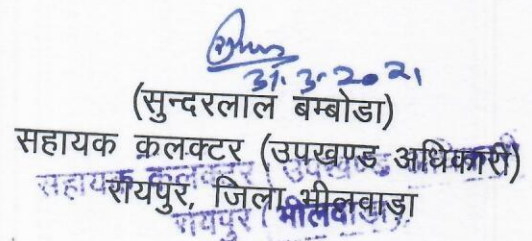 31.3.2021
(सुन्दरलाल बम्बोडा)
सहायक कलक्टर (उपखण्ड अधिकारी)
रायपुर, जिला भीलवाड़ा
सहायक कलक्टर (उपखण्ड
रायपुर (भीलवाड़ा)